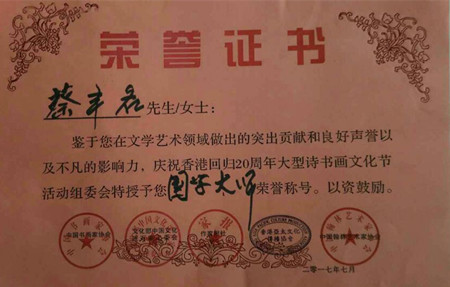 荣誉证书
蔡丰名先生/女士：
鉴于您在文学艺术领域做出的突出贡献和良好声誉以
及不凡的影响力，庆祝香港回归20周年大型诗书画文化节
活动组委会特授予您国学大师荣誉称号。以资鼓励。
二零一七年七月